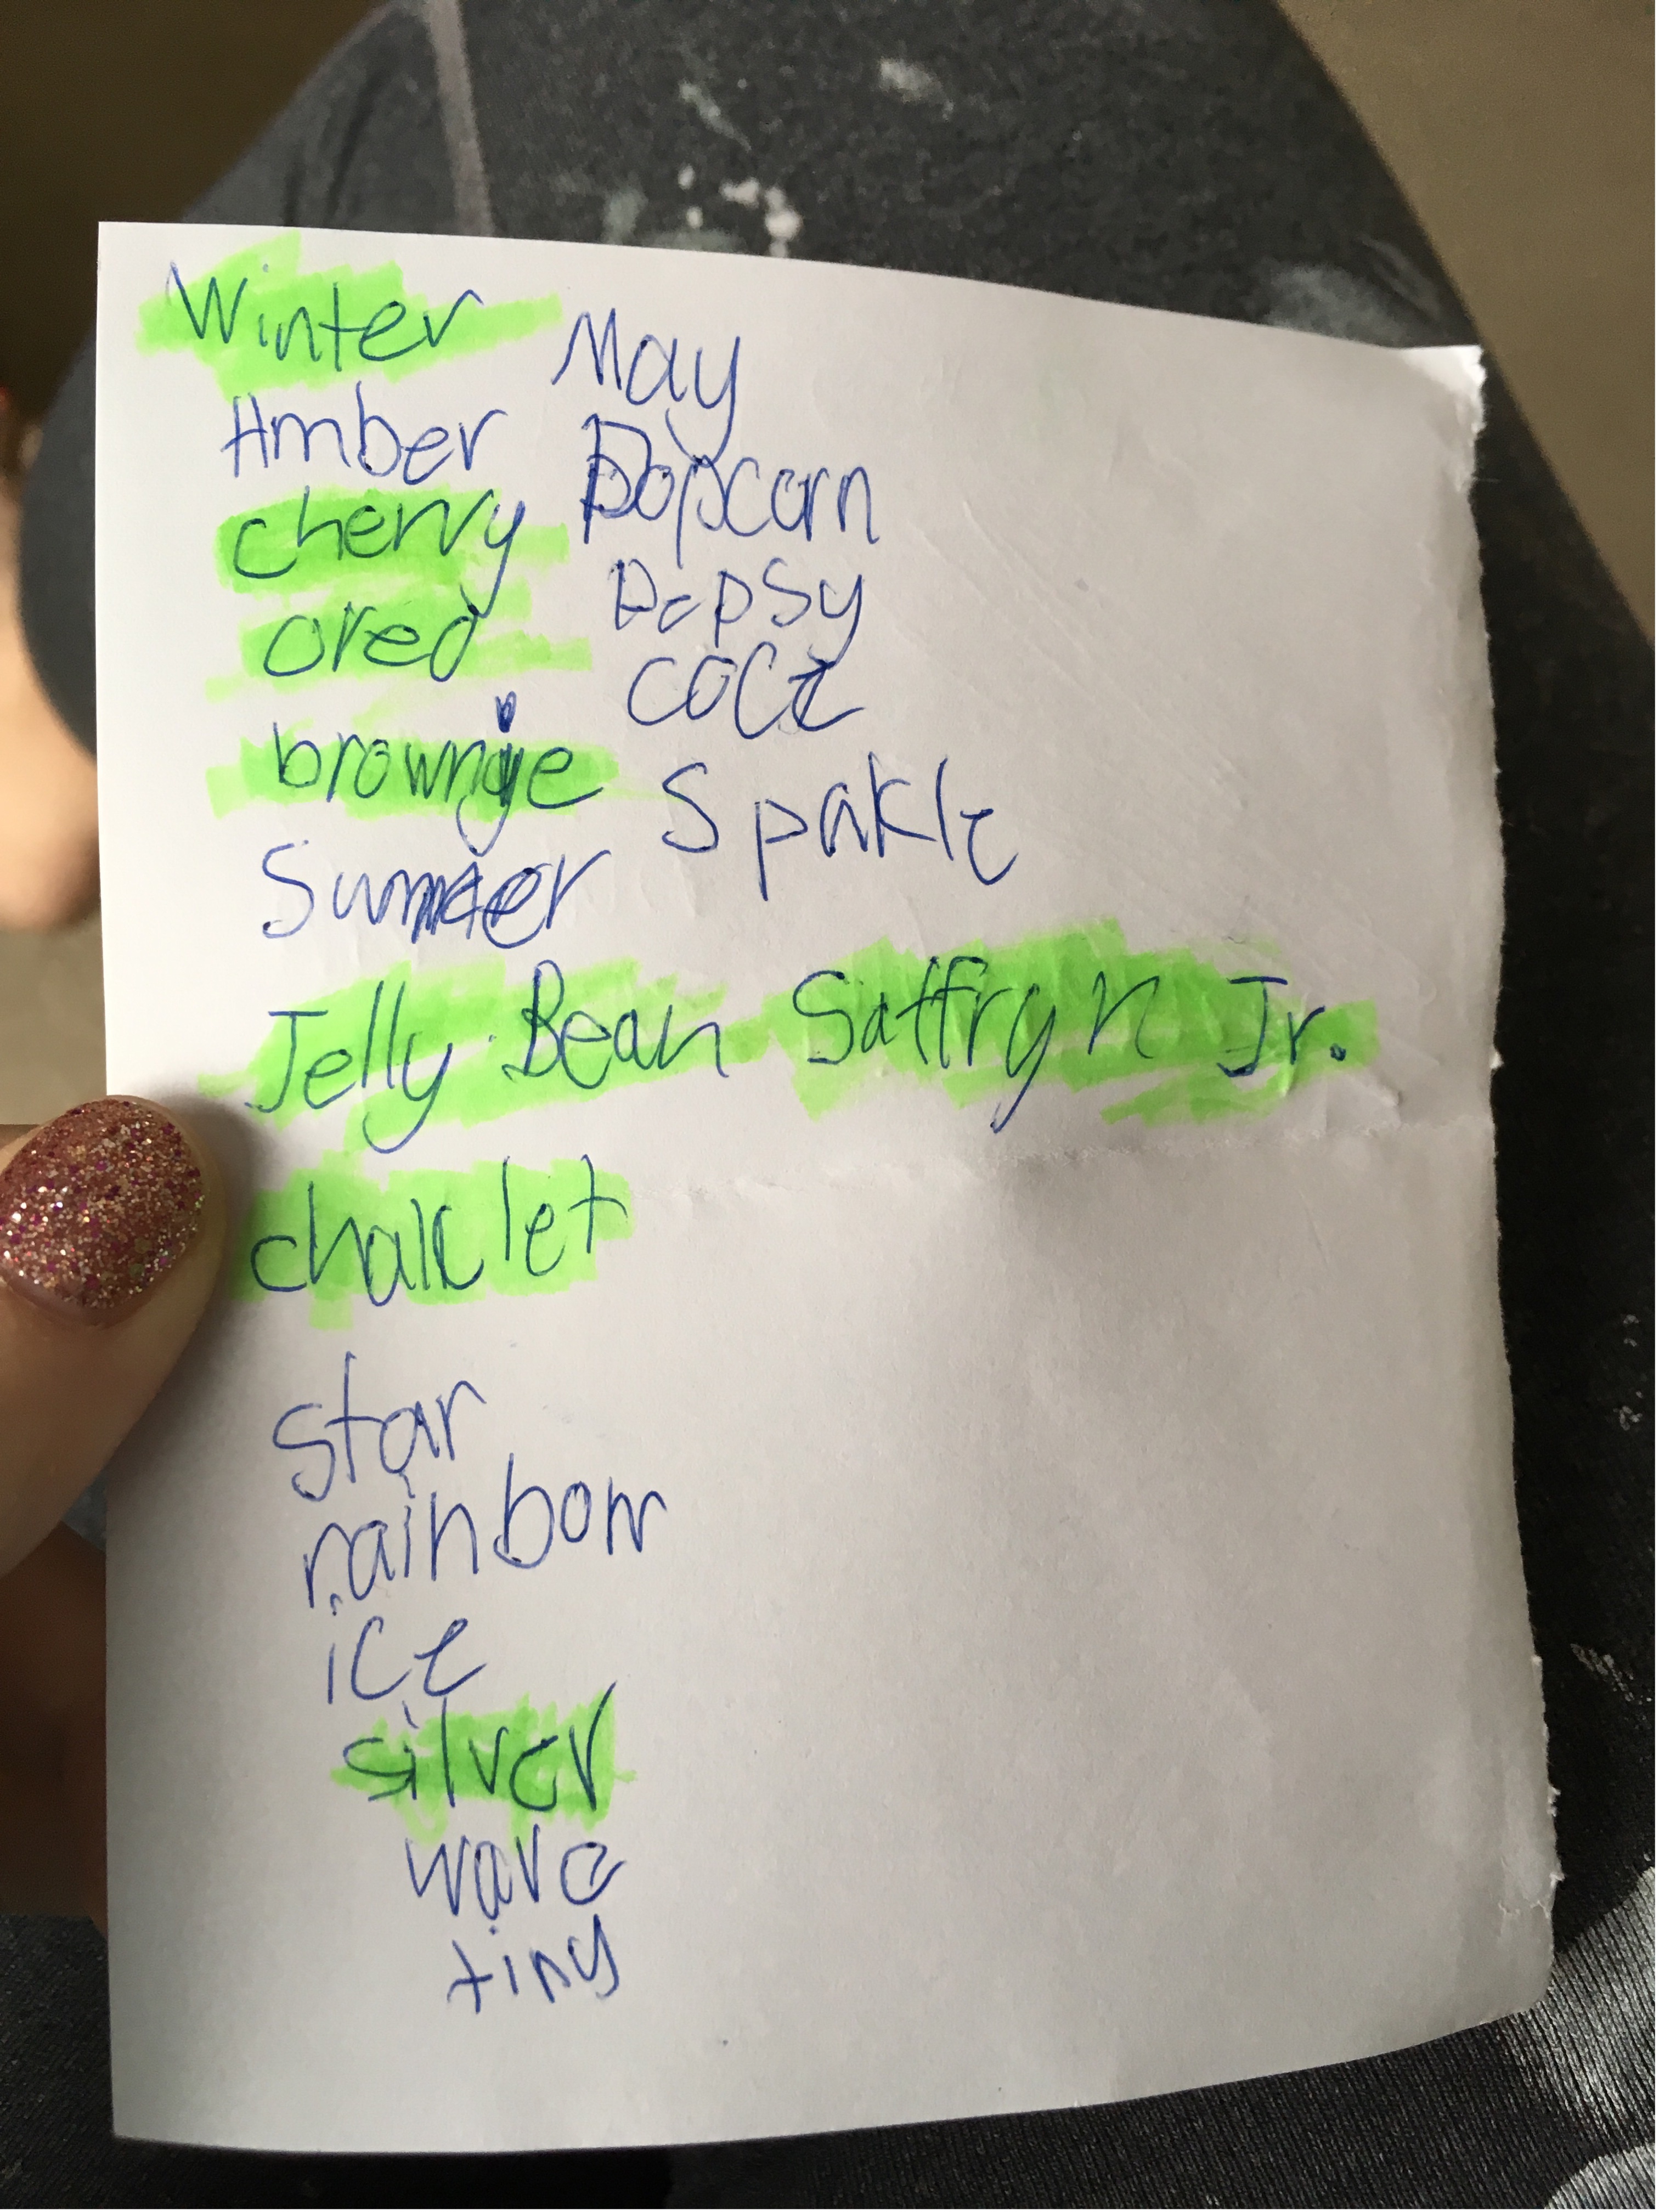 Winter
May
Amber
Popcorn
cherry
Pepsy
oreo
coce
brownie
Spakle
Summer
Jelly Bean Saffryn Jr.
chalclet
star
rainbow
ice
silver
wave
tiny